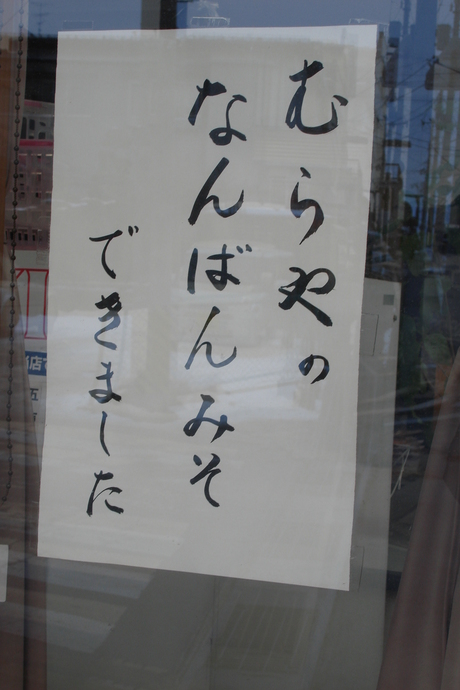 むらやの
なんばんみそ
できました
店
五